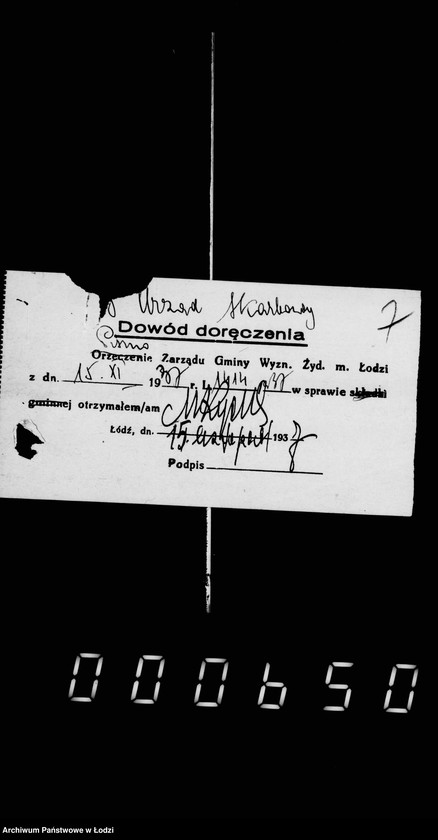 Urząd Skarbowy
7
Dowód doręczenia
Pismo
Orzeczenie Zarządu Gminy Wyzn. Żyd. m. Łodzi
z dn. 15. XI 1937 r. L. 1414 /37 w sprawie składki
gminnej otrzymałem/am
Łódź, dn. 15. listopad 1937
Podpis
000650
Archiwum Państwowe w Łodzi